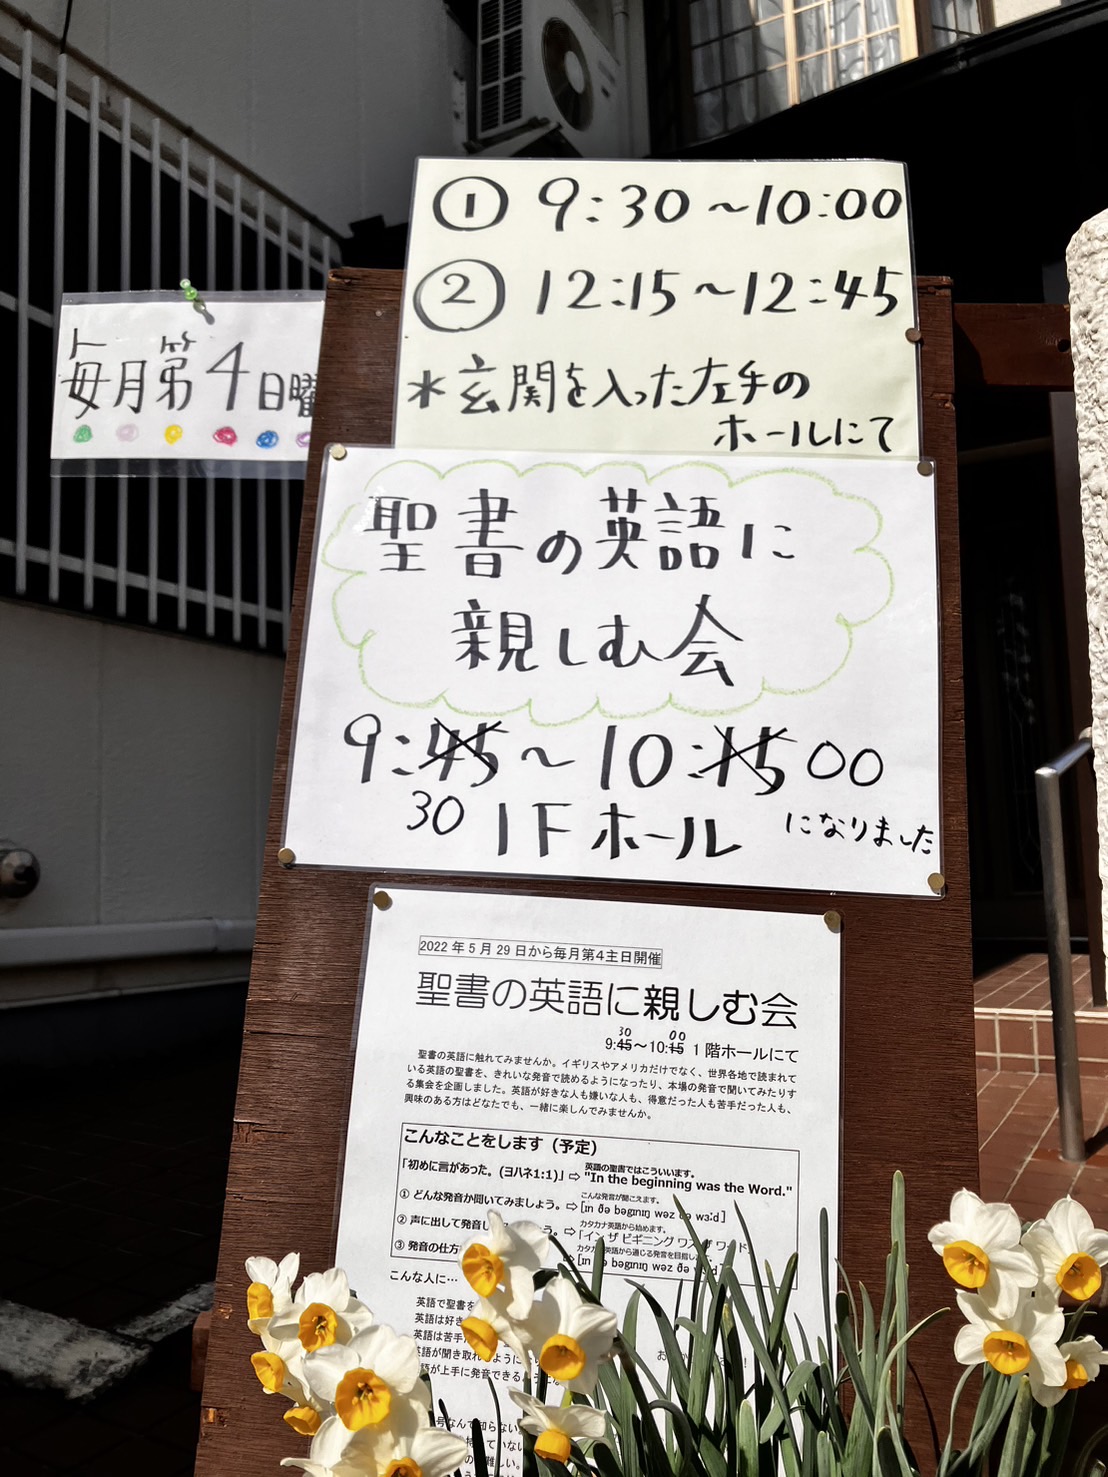 ① 9:30～10:00
② 12:15～12:45
※玄関を入った左手の
ホールにて
毎月第4日曜
聖書の英語に
親しむ会
9:45～10:15 00
30 1Fホール になりました
2022年5月29日から毎月第4主日開催
聖書の英語に親しむ会
30 00
9:45～10:15 1階ホールにて
聖書の英語に触れてみませんか。イギリスやアメリカだけでなく、世界各地で読まれて
いる英語の聖書を、きれいな発音で読めるようになったり、本場の発音で聞いてみたりす
る集会を企画しました。英語が好きな人も嫌いな人も、得意だった人も苦手だった人も、
興味のある方はどなたでも、一緒に楽しんでみませんか。
こんなことをします（予定）
英語の聖書ではこういいます。
「初めに言があった。(ヨハネ1:1)」⇨ "In the beginning was the Word."
こんな発音が聞こえます。
① どんな発音か聞いてみましょう。⇨ [ɪn ðə bəgɪnɪŋ wəz ðə wɜːd]
カタカナ英語から始めます。
② 声に出して発音し う。⇨「イン ザ ビギニング ワズ ザ ワード」
カタカナ英語から通じる発音を目指します。
③ 発音の仕方 ⇨ [ɪn ðə bəgɪnɪŋ wəz ðə
こんな人に…
英語で聖書を
英語は好き
英語は苦手
英語が聞き取れるように
語が上手に発音できるように
号なんて知らない